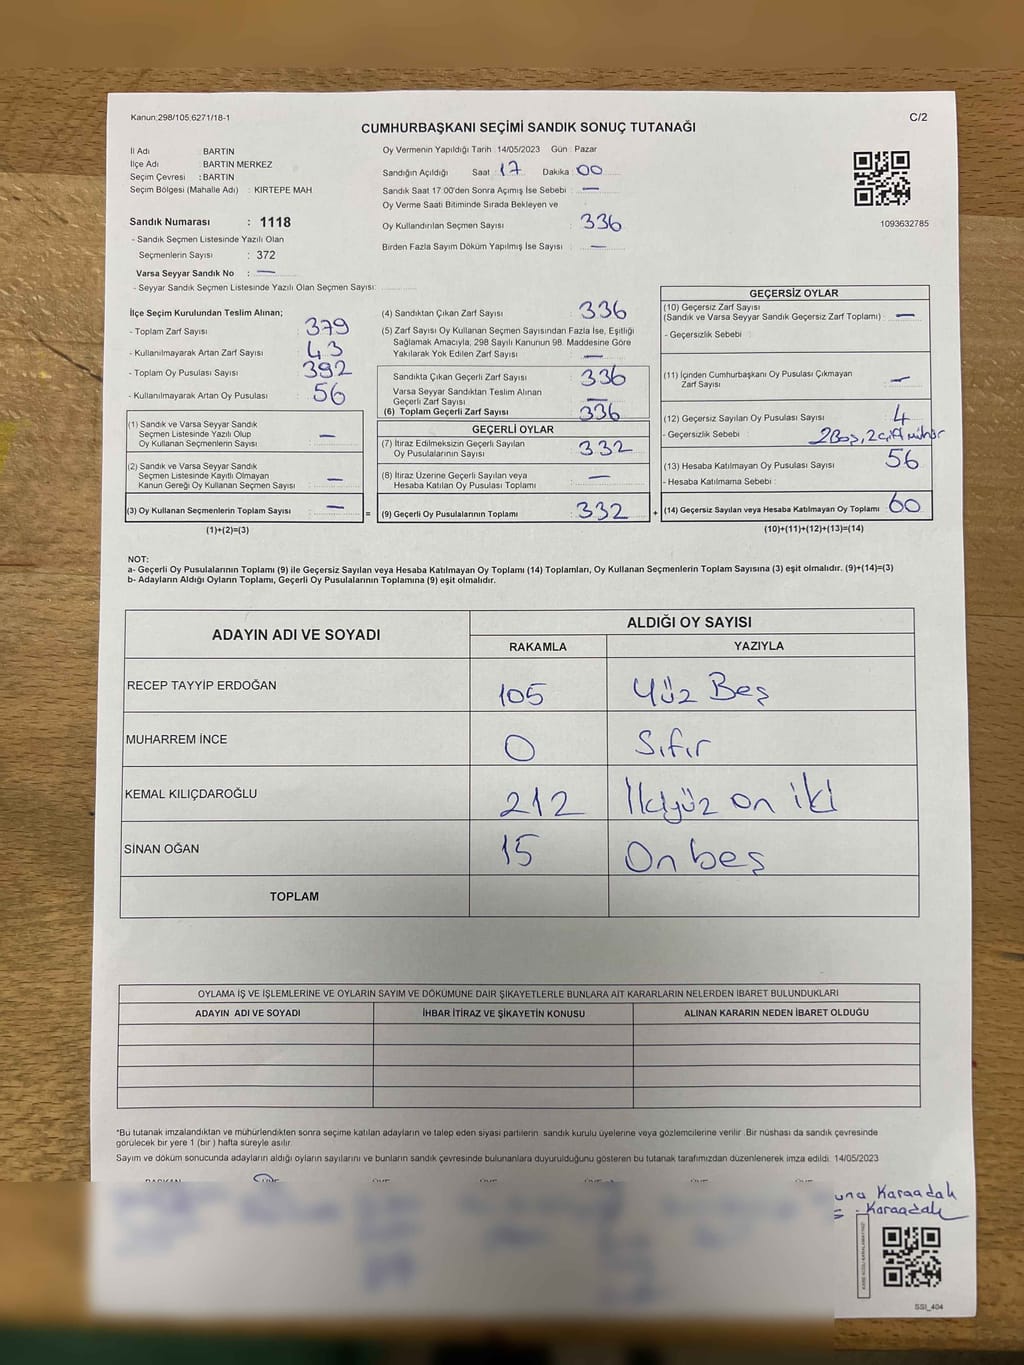 Kanun;298/105,6271/18-1
C/2
CUMHURBAŞKANI SEÇİMİ SANDIK SONUÇ TUTANAĞI
İl Adı BARTIN
İlçe Adı BARTIN MERKEZ
Seçim Çevresi : BARTIN
Seçim Bölgesi (Mahalle Adı) : KIRTEPE MAH
Sandık Numarası : 1118
- Sandık Seçmen Listesinde Yazılı Olan
Seçmenlerin Sayısı : 372
Varsa Seyyar Sandık No : —
- Seyyar Sandık Seçmen Listesinde Yazılı Olan Seçmen Sayısı:
Oy Vermenin Yapıldığı Tarih 14/05/2023 Gün : Pazar
Sandığın Açıldığı Saat : 17 Dakika : 00
Sandık Saat 17:00'den Sonra Açımış İse Sebebi : —
Oy Verme Saati Bitiminde Sırada Bekleyen ve
Oy Kullandırılan Seçmen Sayısı : 336
Birden Fazla Sayım Döküm Yapılmış İse Sayısı : —
1093632785
İlçe Seçim Kurulundan Teslim Alınan;
- Toplam Zarf Sayısı : 379
- Kullanılmayarak Artan Zarf Sayısı : 43
- Toplam Oy Pusulası Sayısı : 392
- Kullanılmayarak Artan Oy Pusulası : 56
(1) Sandık ve Varsa Seyyar Sandık
Seçmen Listesinde Yazılı Olup
Oy Kullanan Seçmenlerin Sayısı : —
(2) Sandık ve Varsa Seyyar Sandık
Seçmen Listesinde Kayıtlı Olmayan
Kanun Gereği Oy Kullanan Seçmen Sayısı : —
(3) Oy Kullanan Seçmenlerin Toplam Sayısı : —
(1)+(2)=(3)
(4) Sandıktan Çıkan Zarf Sayısı : 336
(5) Zarf Sayısı Oy Kullanan Seçmen Sayısından Fazla İse, Eşitliği
Sağlamak Amacıyla, 298 Sayılı Kanunun 98. Maddesine Göre
Yakılarak Yok Edilen Zarf Sayısı : —
Sandıkta Çıkan Geçerli Zarf Sayısı : 336
Varsa Seyyar Sandıktan Teslim Alınan
Geçerli Zarf Sayısı : —
(6) Toplam Geçerli Zarf Sayısı : 336
GEÇERLİ OYLAR
(7) İtiraz Edilmeksizin Geçerli Sayılan
Oy Pusulalarının Sayısı : 332
(8) İtiraz Üzerine Geçerli Sayılan veya
Hesaba Katılan Oy Pusulası Toplamı : —
= (9) Geçerli Oy Pusulalarının Toplamı : 332 +
GEÇERSİZ OYLAR
(10) Geçersiz Zarf Sayısı
(Sandık ve Varsa Seyyar Sandık Geçersiz Zarf Toplamı) : —
- Geçersizlik Sebebi :
(11) İçinden Cumhurbaşkanı Oy Pusulası Çıkmayan
Zarf Sayısı : —
(12) Geçersiz Sayılan Oy Pusulası Sayısı : 4
- Geçersizlik Sebebi : 2 Boş, 2 çift mühür
(13) Hesaba Katılmayan Oy Pusulası Sayısı : 56
- Hesaba Katılmama Sebebi :
(14) Geçersiz Sayılan veya Hesaba Katılmayan Oy Toplamı : 60
(10)+(11)+(12)+(13)=(14)
NOT:
a- Geçerli Oy Pusulalarının Toplamı (9) ile Geçersiz Sayılan veya Hesaba Katılmayan Oy Toplamı (14) Toplamları, Oy Kullanan Seçmenlerin Toplam Sayısına (3) eşit olmalıdır. (9)+(14)=(3)
b- Adayların Aldığı Oyların Toplamı, Geçerli Oy Pusulalarının Toplamına (9) eşit olmalıdır.
ADAYIN ADI VE SOYADI
ALDIĞI OY SAYISI
RAKAMLA YAZIYLA
RECEP TAYYİP ERDOĞAN 105 Yüz Beş
MUHARREM İNCE 0 Sıfır
KEMAL KILIÇDAROĞLU 212 İkiyüz on iki
SİNAN OĞAN 15 On beş
TOPLAM
OYLAMA İŞ VE İŞLEMLERİNE VE OYLARIN SAYIM VE DÖKÜMÜNE DAİR ŞİKAYETLERLE BUNLARA AİT KARARLARIN NELERDEN İBARET BULUNDUKLARI
ADAYIN ADI VE SOYADI İHBAR İTİRAZ VE ŞİKAYETİN KONUSU ALINAN KARARIN NEDEN İBARET OLDUĞU
*Bu tutanak imzalandıktan ve mühürlendikten sonra seçime katılan adayların ve talep eden siyasi partilerin sandık kurulu üyelerine veya gözlemcilerine verilir. Bir nüshası da sandık çevresinde
görülecek bir yere 1 (bir) hafta süreyle asılır.
Sayım ve döküm sonucunda adayların aldığı oyların sayılarını ve bunların sandık çevresinde bulunanlara duyurulduğunu gösteren bu tutanak tarafımızdan düzenlenerek imza edildi. 14/05/2023
una Karaadak
Karaadak
SSI_404